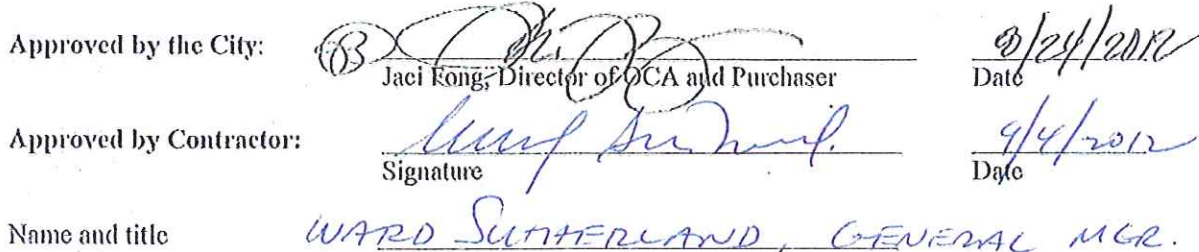 Approved by the City: 8/24/2012
Jaci Fong, Director of OCA and Purchaser Date
Approved by Contractor: 9/4/2012
Signature Date
Name and title WARD SUTHERLAND, GENERAL MGR.